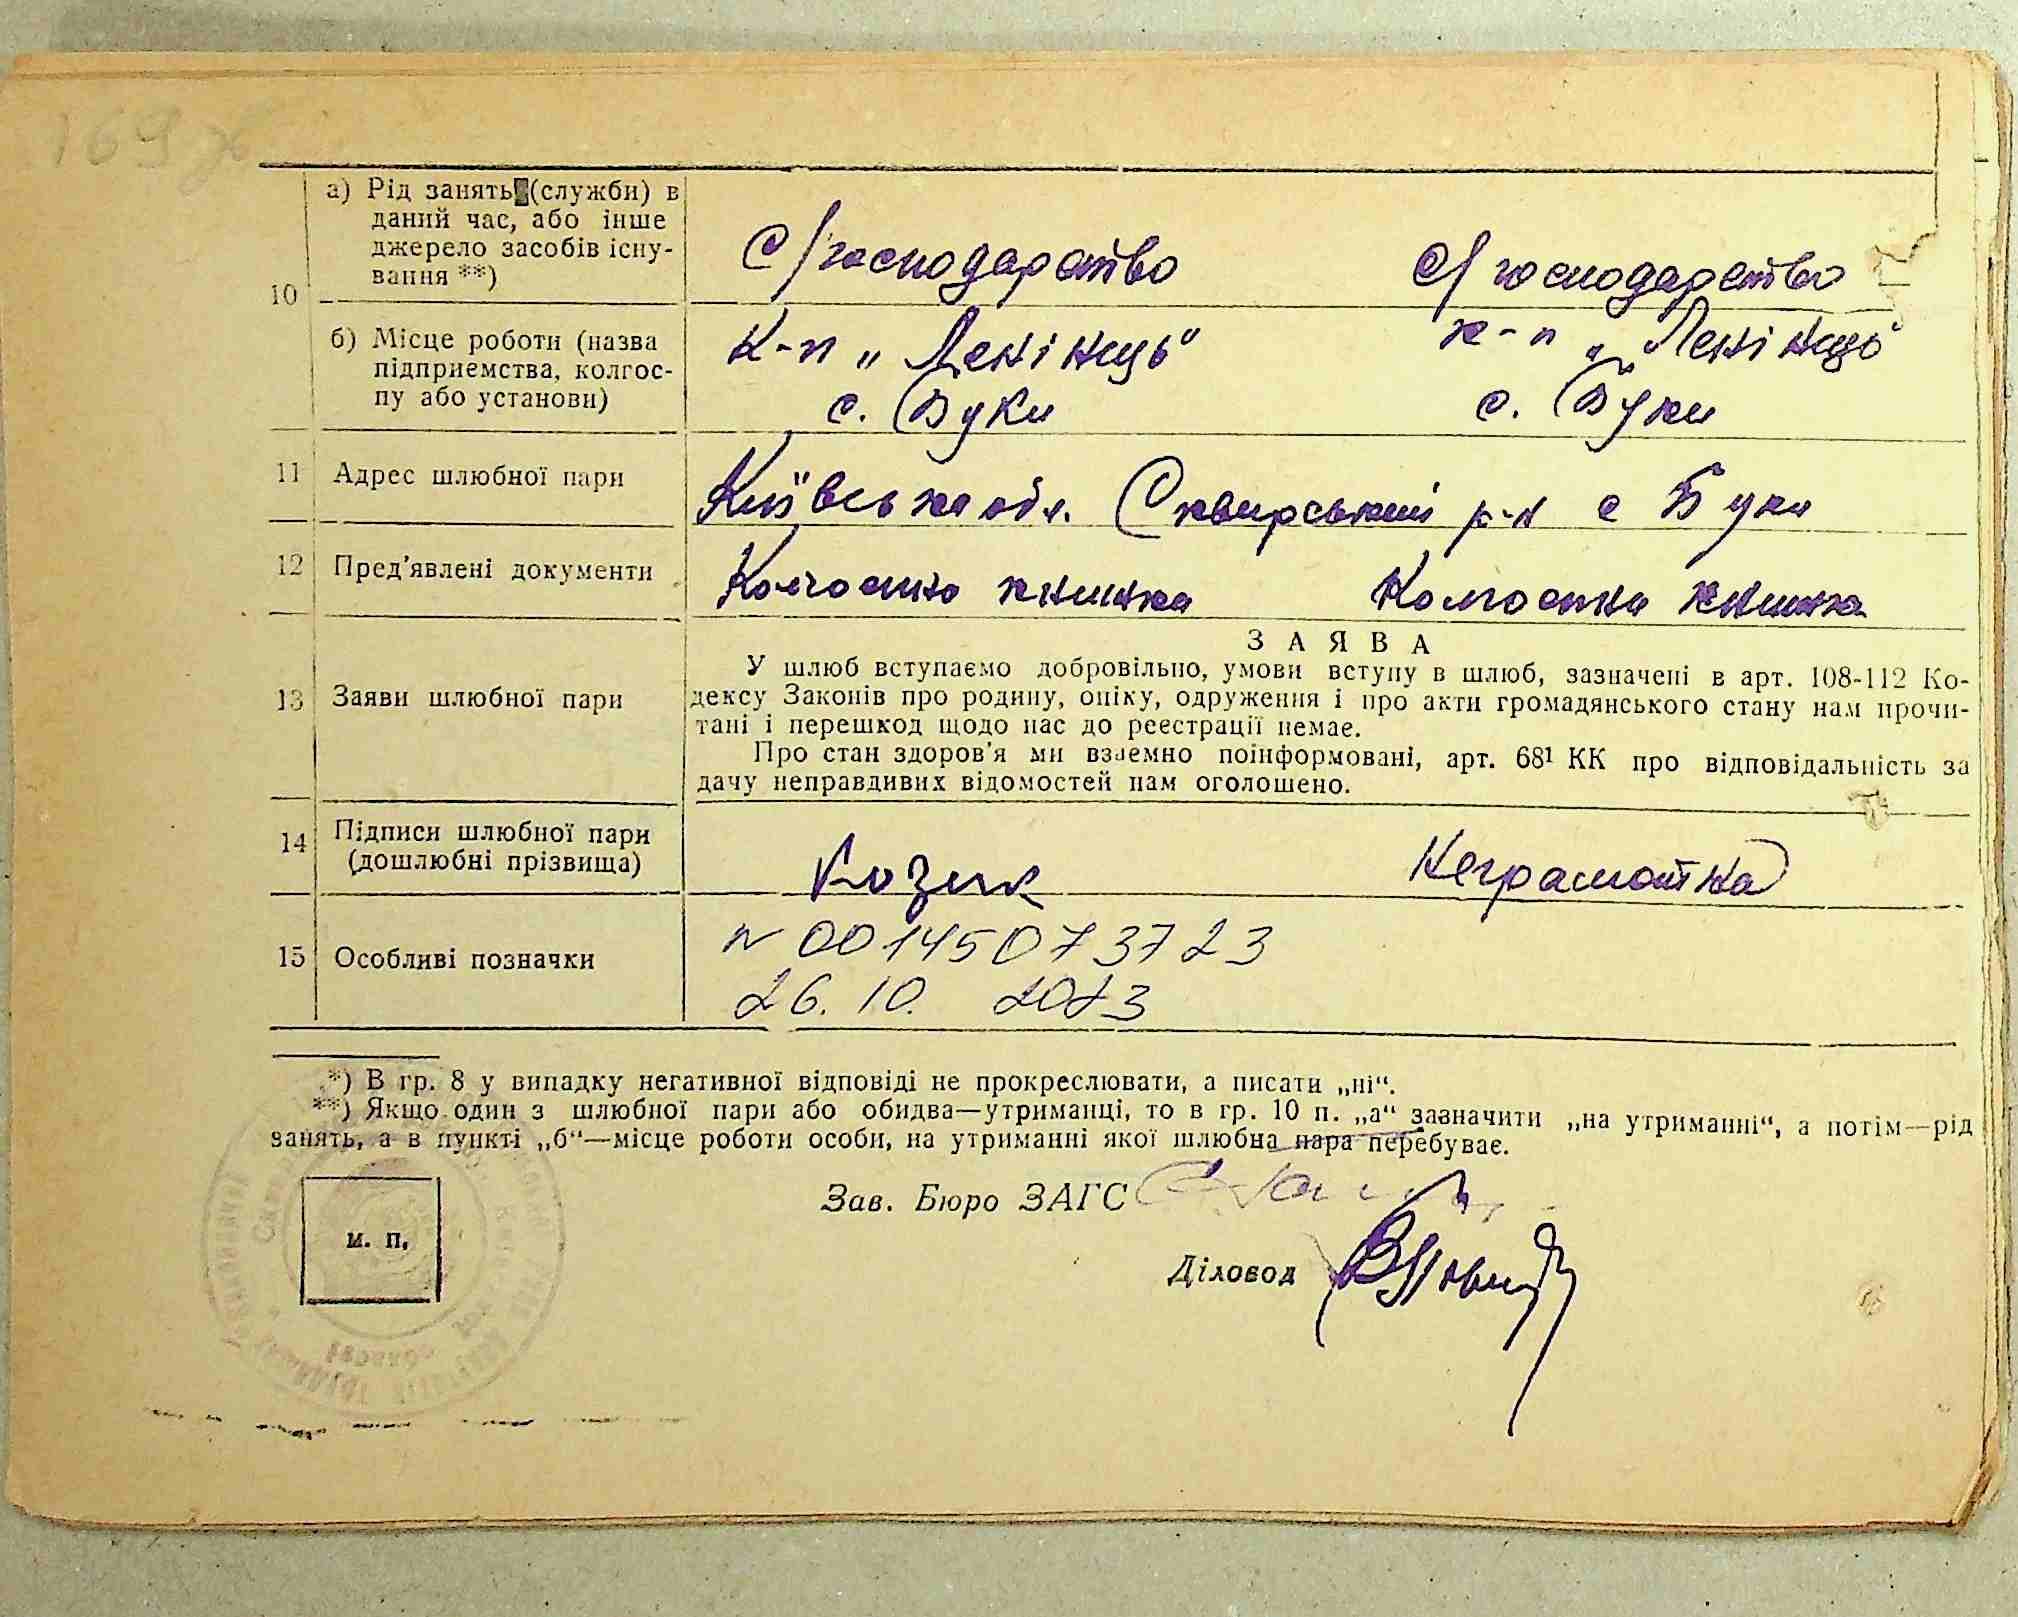 169ж
10
а) Рід занять (служби) в
даний час, або інше
джерело засобів існу-
вання **)
С/господарство С/господарство
б) Місце роботи (назва
підприємства, колгос-
пу або установи)
К-п „Ленінець“ к-п „Ленінець“
с. Буки с. Буки
11 Адрес шлюбної пари Київська обл. Сквирський р-н с Буки
12 Пред'явлені документи Колгоспна книжка Колгоспна книжка
ЗАЯВА
13 Заяви шлюбної пари
У шлюб вступаємо добровільно, умови вступу в шлюб, зазначені в арт. 108-112 Ко-
дексу Законів про родину, опіку, одруження і про акти громадянського стану нам прочи-
тані і перешкод щодо нас до реєстрації немає.
Про стан здоров'я ми взаємно поінформовані, арт. 68¹ КК про відповідальність за
дачу неправдивих відомостей нам оголошено.
14 Підписи шлюбної пари
(дошлюбні прізвища)
Козик Неграмотна
15 Особливі позначки
N 00145073723
26.10. 2023
*) В гр. 8 у випадку негативної відповіді не прокреслювати, а писати „ні“.
**) Якщо один з шлюбної пари або обидва—утриманці, то в гр. 10 п. „а“ зазначити „на утриманні“, а потім—рід
занять, а в пункті „б“—місце роботи особи, на утриманні якої шлюбна пара перебуває.
Зав. Бюро ЗАГС
м. п.
Діловод